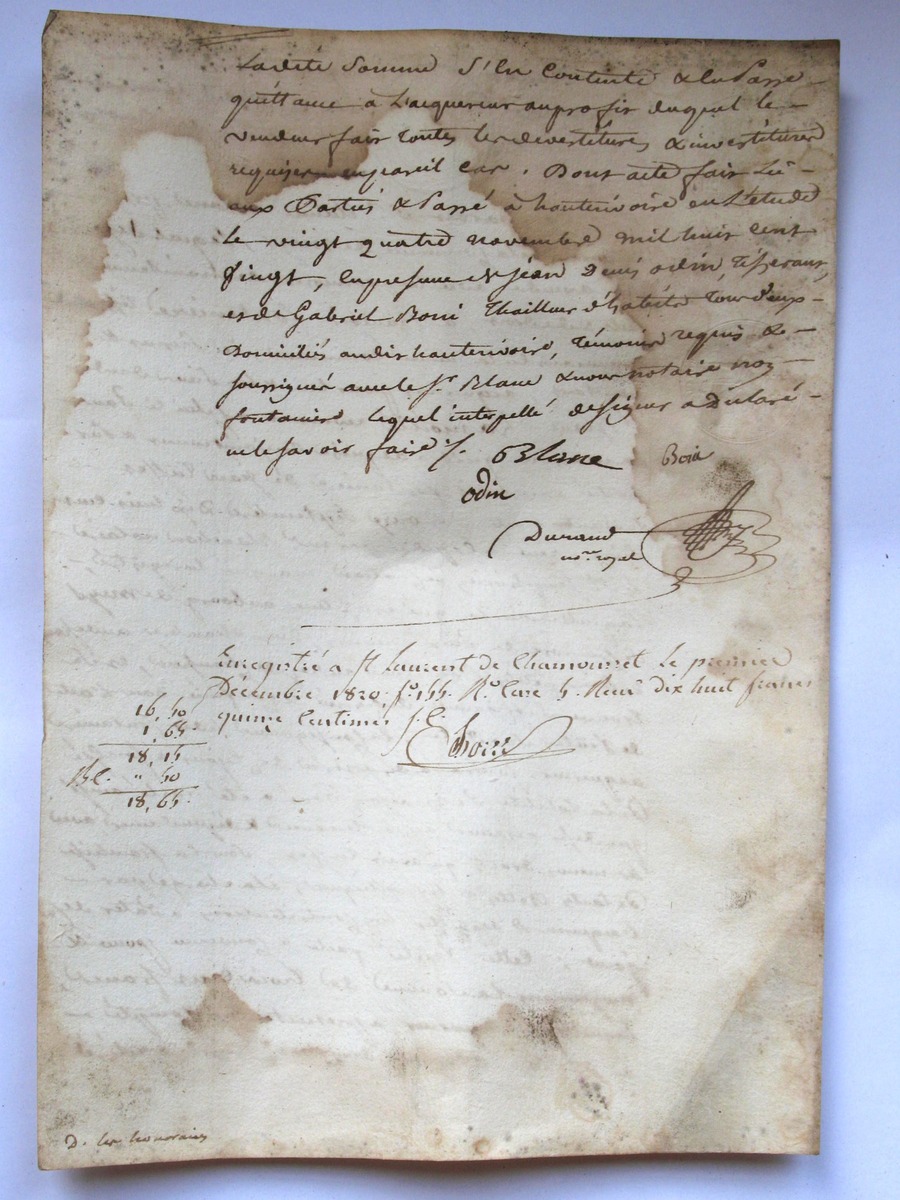 Ladite Somme S'en Contente & en Passe
quittance à L'acquereur au profit duquel le
vendeur fait toutes les devestitures & investitures
requises en pareil cas. Dont acte fait Lû
aux Parties & Passé à hauterivoire en L'etude
Le vingt quatre novembre mil huit cent
Vingt, en presence de jean Denis odin, tisserant,
et de Gabriel Boui thailleur d'habits tous deux
Domiciliés audit hauterivoire, témoins requis &
soussignés avec le Sr. Blanc & nous notaire non
fontanier lequel interpellé de signer a Déclaré
ne le savoir faire /. Blanc
odin
Durand
nore. royal
Enregistré a St Laurent de Chamousset le premier
Décembre 1820, fo. 155. Ro. Case 5. Reçu dix huit francs
quinze Centimes
16, 50
1, 65
18, 15
" 50
18, 65
D. les honoraires